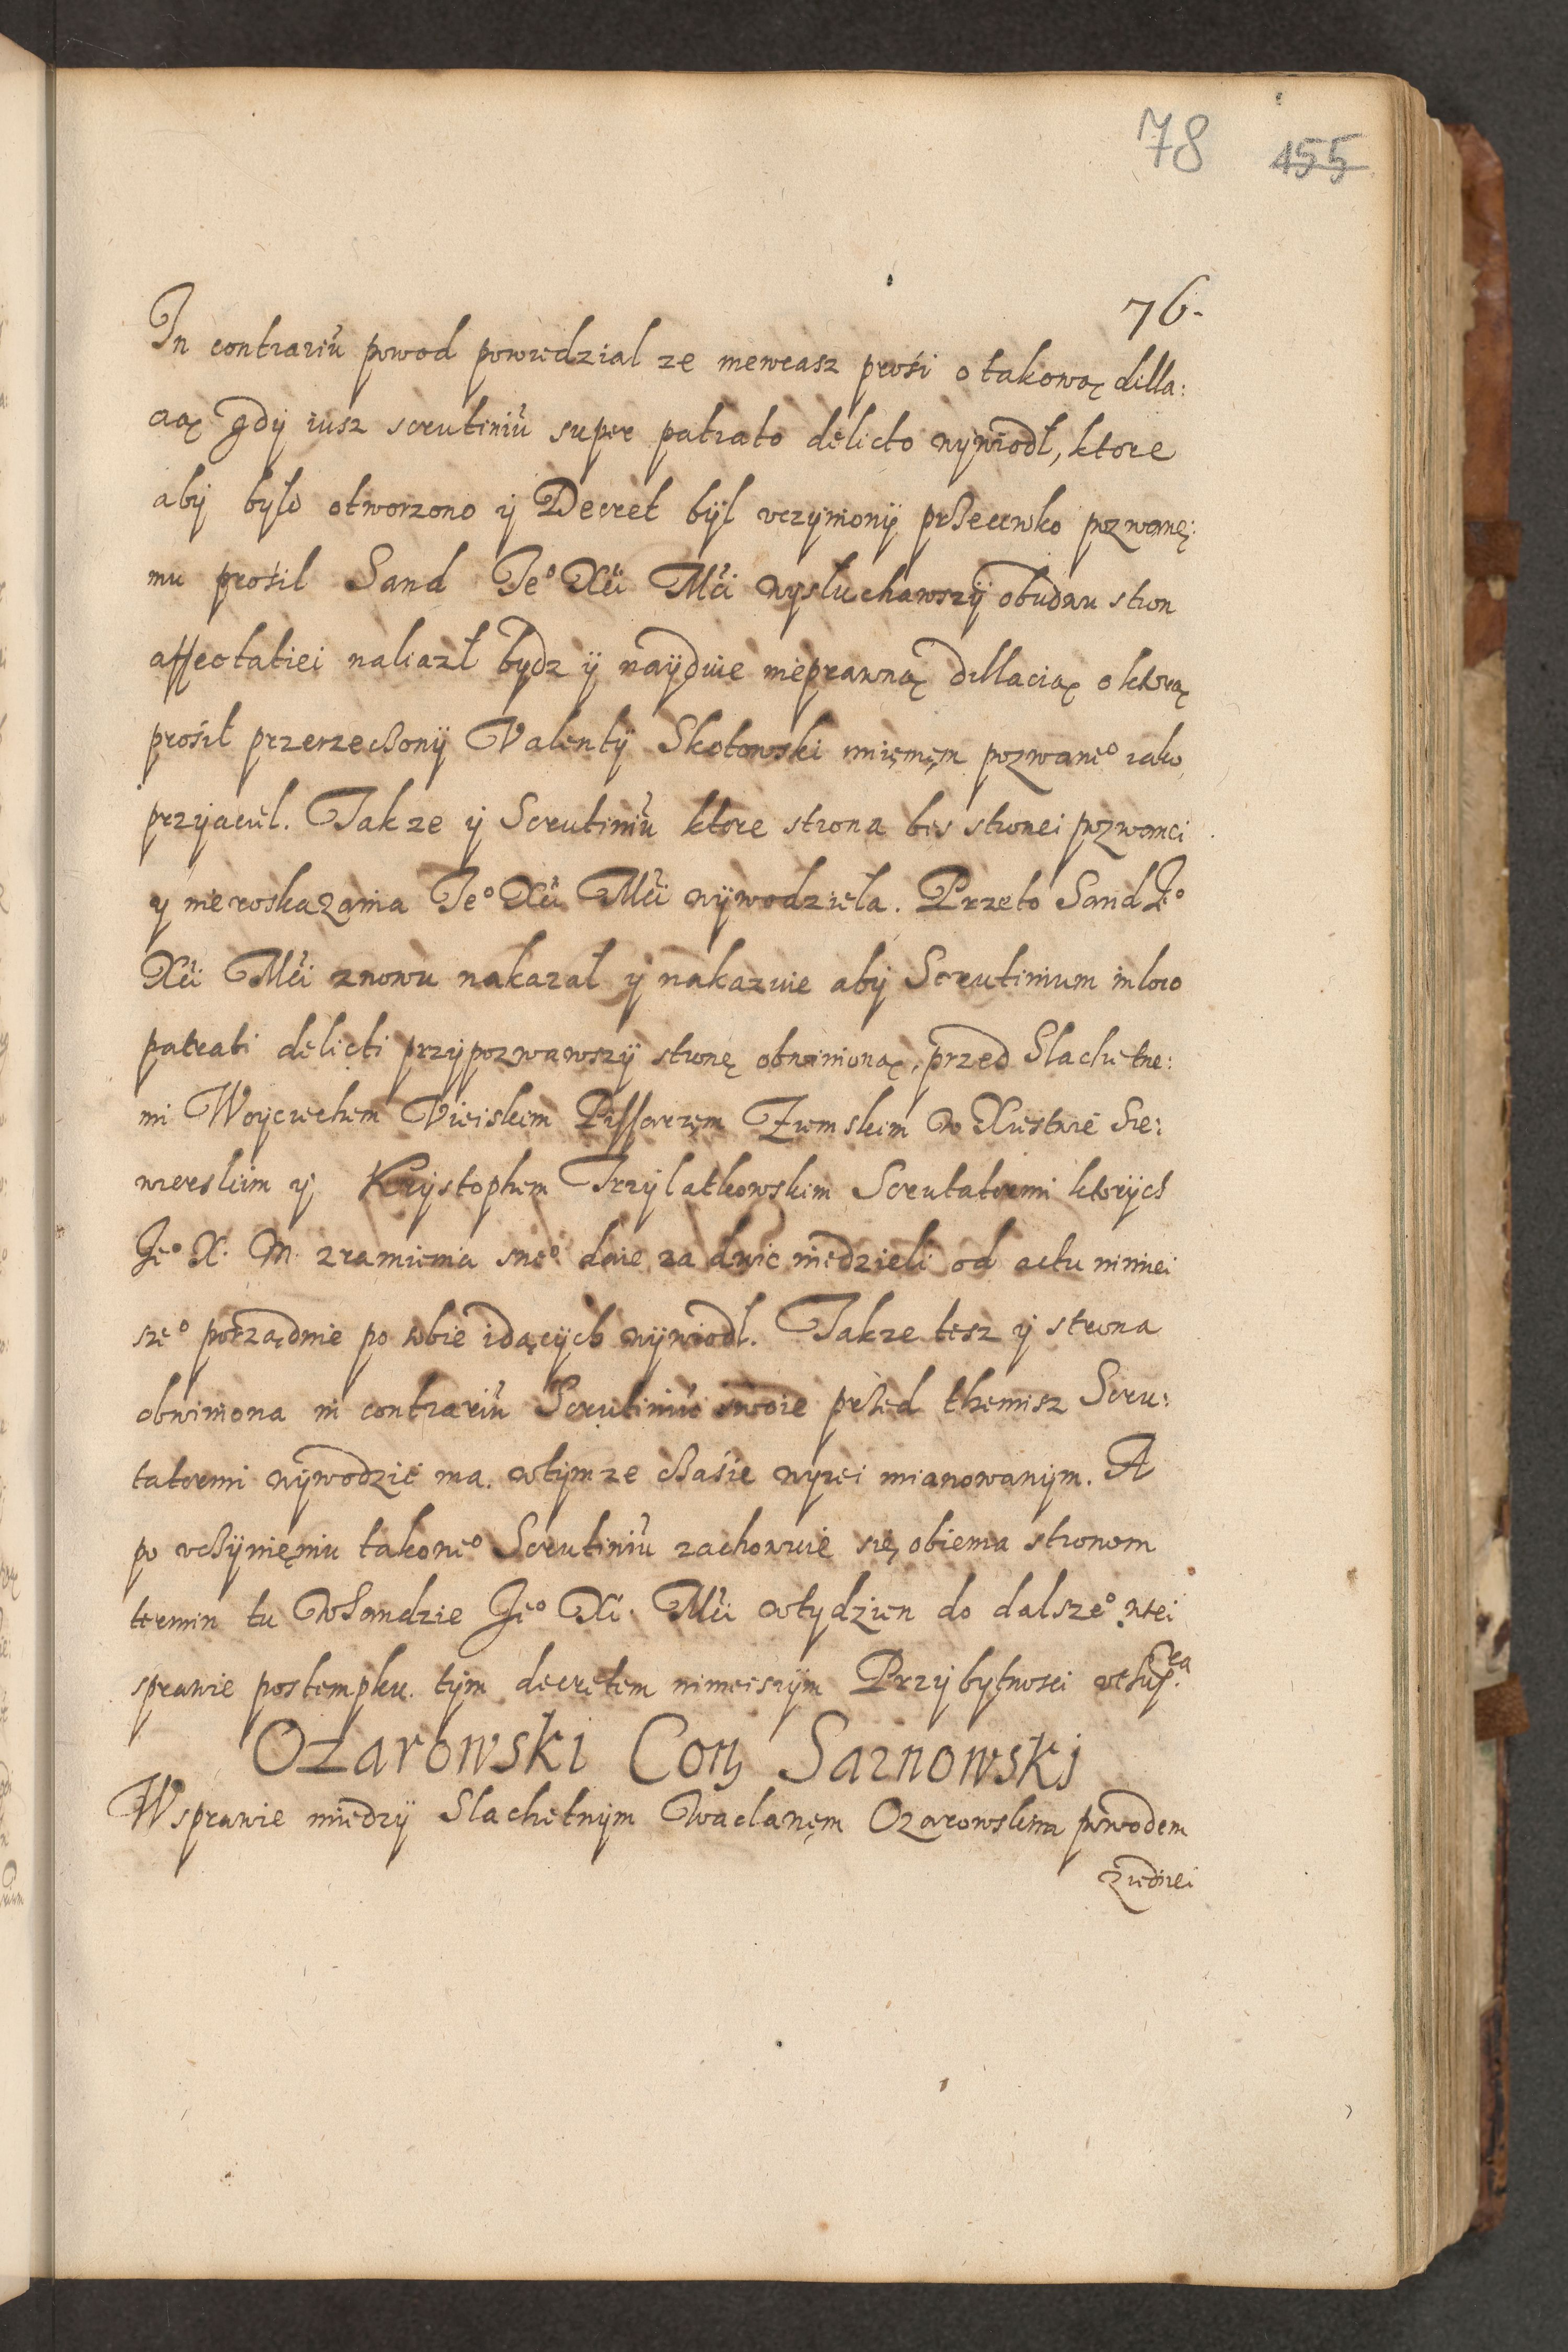 78 455
76.
In contrariũ powod powiedzial ze niewcasz prosi o takową dilla:
cią gdÿ iusz scrutiniũ super patrato delicto wywiodł, ktore
abÿ było otworzono ÿ Decret bÿl vczynionÿ prßeciwko pozwanę:
mu prosil Sand Ieº Xći Mći wysłuchawszÿ obudwu stron
affectatiei naliazł bydz ÿ naÿduie nieprawną dillacią o ktorą
prosił przerzeczonÿ Valentÿ Skotowski imięnęm pozwaneº iako
przyaciel. Takze ÿ Scrutiniũ ktore strona bes stronei pozwanei
y nieroskazania Ieº Xći Mći wÿwodziela. Przeto Sand Ieº
Xći Mći znowu nakazał ÿ nakazuie abÿ Scrutinium in loco
patrati delicti przÿpozwawszÿ stronę obwinioną, przed Slachetne:
mi Woyciechem Pissarzem Zięmskim W Xiestwie Sie:
wierskim ÿ Krÿstophem Trzylatkowskim Scrutatormi ktorÿch
Ieº X. M. zramienia sweº daie za dwie niedzieli od actu niniei
szeº porządnie po sobie idącÿch wywiodl. Takze tesz ÿ strona
obwiniona in contrariũ Scrutiniũ swoie prßed themisz Scru:
tatormi wÿwodzić ma. wtÿmze czasie wyzei mianowanÿm. A
po vczÿnięniu takoweº Scrutiniũ zachowuie się, obiema stronom
termin tu WSandzie Ieº Xi. Mći wtydzien do dalszeº wtei
sprawie postempku. tÿm decretem ninieiszÿm Przÿbytnosci
Ozarowski Cor Sarnowski
Wsprawie międzÿ Slachetnÿm Waclawęm Ozarowskim powodem
ziednei